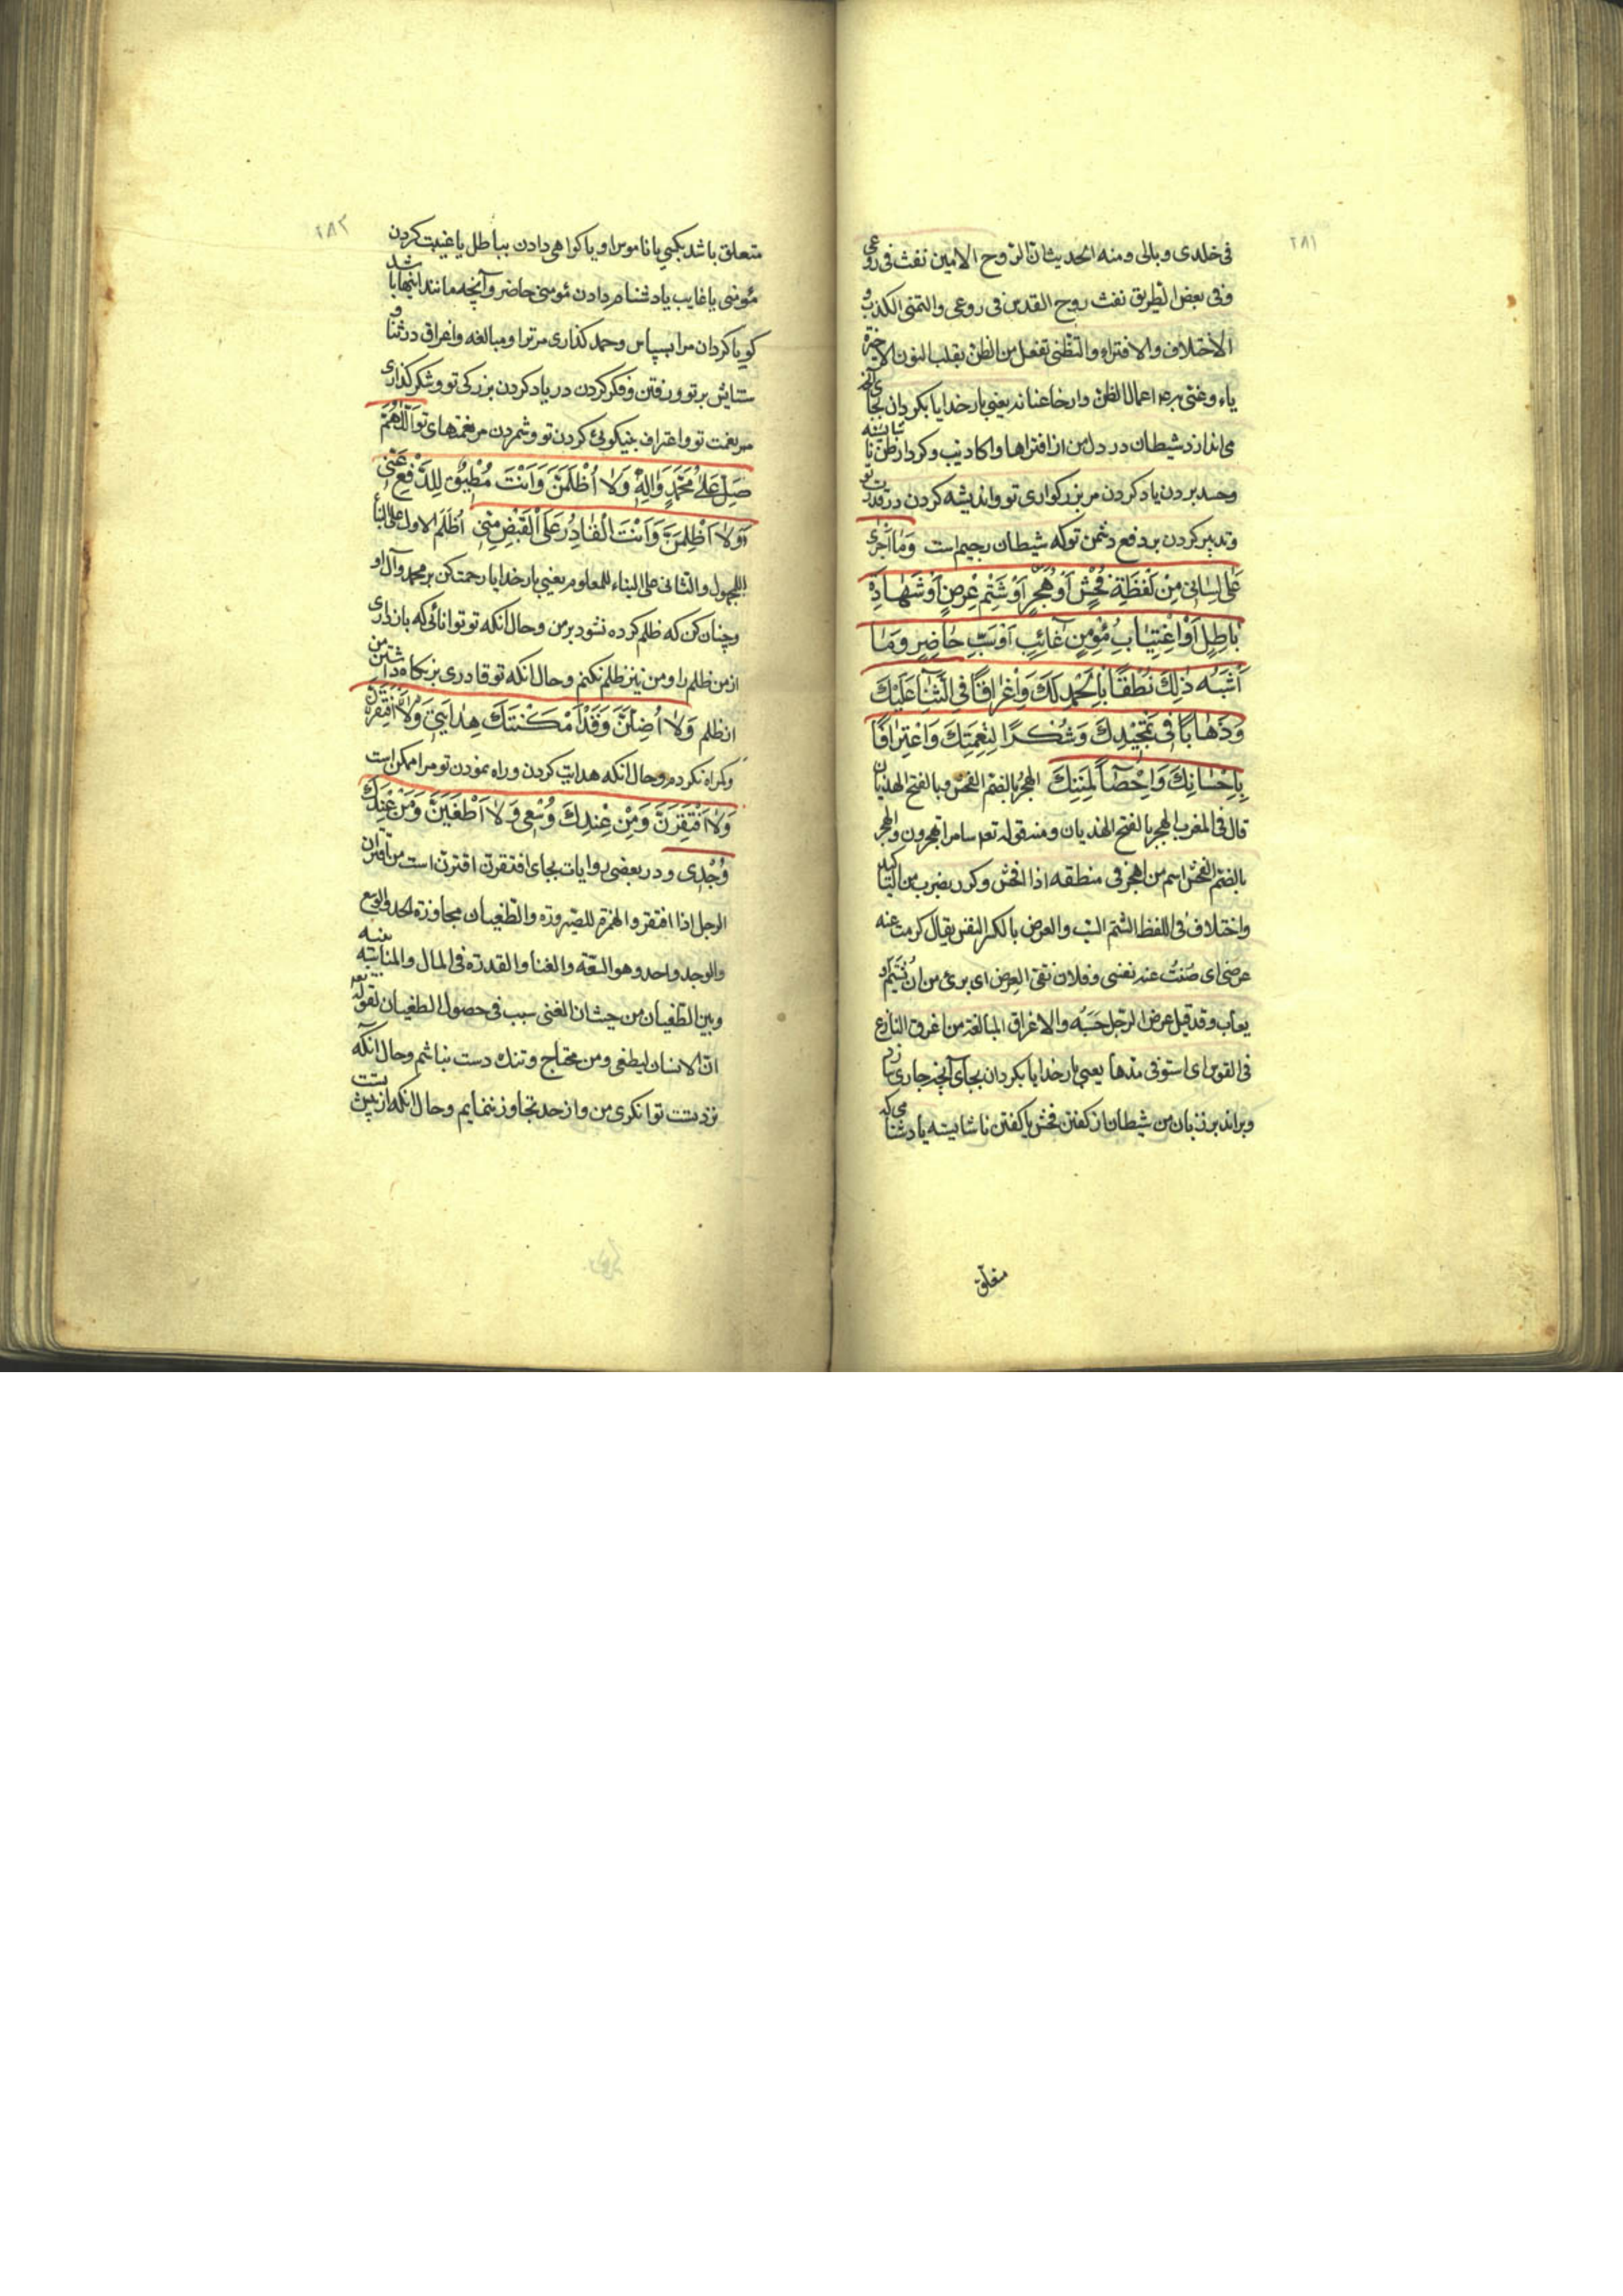 ٢٨١
فی خلدی و بالی و منه الحدیث ان الروح الامین نفث فی روعی
و فی بعض الطریق نفث روح القدس فی روعی و التمنی الکذب و
الاختلاف و الافتراء و التظنی تفعل من الظن بقلب النون الاخیرة
یاء و غنی به اعمال الظن و ارخا عنانه یعنی بار خدایا بکردان بجای آنچه
می اندازد شیطان در دل من از افتراها و اکاذیب و کردار ظن ناشایسته
و حسد بردن یاد کردن مر بزرکواری تو و اندیشه کردن در قدرت تو
و تدبیر کردن بر دفع دشمن تو که شیطان رجیم است وَمَا اَجْرٰی
عَلٰی لِسَانی مِنْ لَفْظَةِ فُحْشٍ اَوْ هُجْرٍ اَوْ شَتْمِ عِرْضٍ اَوْ شَهَادَةِ
بَاطِلٍ اَوْ اِغْتِیَابِ مُؤْمِنٍ غَائِبٍ اَوْ سَبِّ حَاضِرٍ وَمَا
اَشْبَهَ ذٰلِكَ نُطْقًا بِالْحَمْدِ لَكَ وَاِغْرَاقًا فِی الثَّنَاءِ عَلَیْكَ
وَذَهَابًا فی تَمْجیدِكَ وَشُكْرًا لِنِعْمَتِكَ وَاعْتِرَافًا
بِاِحْسَانِكَ وَاِحْصَاءً لِمِنَنِكَ الهجر بالضم الفحش و بالفتح الهذیان
قال فی المغرب الهجر بالفتح الهذیان و منه قوله تعه سامرا تهجرون و الهجر
بالضم الفحش اسم من اهجر فی منطقه اذا افحش و کرر بضرب من التاکید
و اختلاف فی اللفظ الشتم السب و العرض بالکسر النفس یقال کرمت عنه
عرضی ای صُنتُ عنه نفسی و فلان نقی العِرض ای بری من ان یُشتم او
یعاب و قد قیل عرض الرجل حَسَبُه و الاغراق المبالغة من اغرق النازع
فی القوس ای استوفی مدها یعنی بار خدایا بکردان بجای آنچه جاری سازد
و براند بر زبان من شیطان از کفتن فحش یا کفتن ناشایسته یا دشنامی که
متعلق
٢٨٢
متعلق باشد بکسی یا ناموس او یا کواهی دادن بباطل یا غیبت کردن
مؤمنی یا غایب یا دشنام دادن مؤمنی حاضر و آنچه مانند اینها باشد
کویا کردان مرا بسپاس و حمد کذاری مر ترا و مبالغه و اغراق در ثنا و
ستایش بر تو و رفتن و فکر کردن در یاد کردن بزرکی تو و شکر کذاری
مر نعمت تو و اعتراف بنیکوئی کردن تو و شمردن مر نعمتهای تو اَللّٰهُمَّ
صَلِّ عَلٰی مُحَمَّدٍ وَاٰلِهِ وَلَا اُظْلَمَنَّ وَاَنْتَ مُطیقٌ لِلدَّفْعِ عَنّی
وَلَا اَظْلِمَنَّ وَاَنْتَ الْقَادِرُ عَلَی الْقَبْضِ مِنّی اُظلم الاول علی البناء
للمجهول و الثانی علی البناء للمعلوم یعنی بار خدایا رحمت کن بر محمد و آل او
و چنان کن که ظلم کرده نشود بر من و حال انکه تو توانائی که باز داری
از من ظلم را و من نیز ظلم نکنم و حال انکه تو قادری بر نکاه داشتن من
از ظلم وَلَا اُضِلَّنَّ وَقَدْ اَمْكَنَتْكَ هِدَایَتی
و کمراه نکردم و حال انکه هدایت کردن و راه نمودن تو مرا ممکن است
وَلَا اَفْتَقِرَنَّ وَمِنْ عِنْدِكَ وُسْعی وَلَا اَطْغَیَنَّ وَمِنْ عِنْدِكَ
وُجْدی و در بعضی روایات بجای افتقرن اقترن است من اقتران
الرجل اذا افتقر و الهمزة للصیرورة و الطغیان مجاوزة الحد و الوسع
و الوجد واحد و هو السعة و الغنا و القدرة فی المال و المناسبة بینه
و بین الطغیان من حیث ان الغنی سبب فی حصول الطغیان لقوله تعه
ان الانسان لیطغی و من محتاج و تنك دست نباشم و حال آنکه
نزد تست توانکری من و از حد تجاوز ننمایم و حال انکه از پیش تست